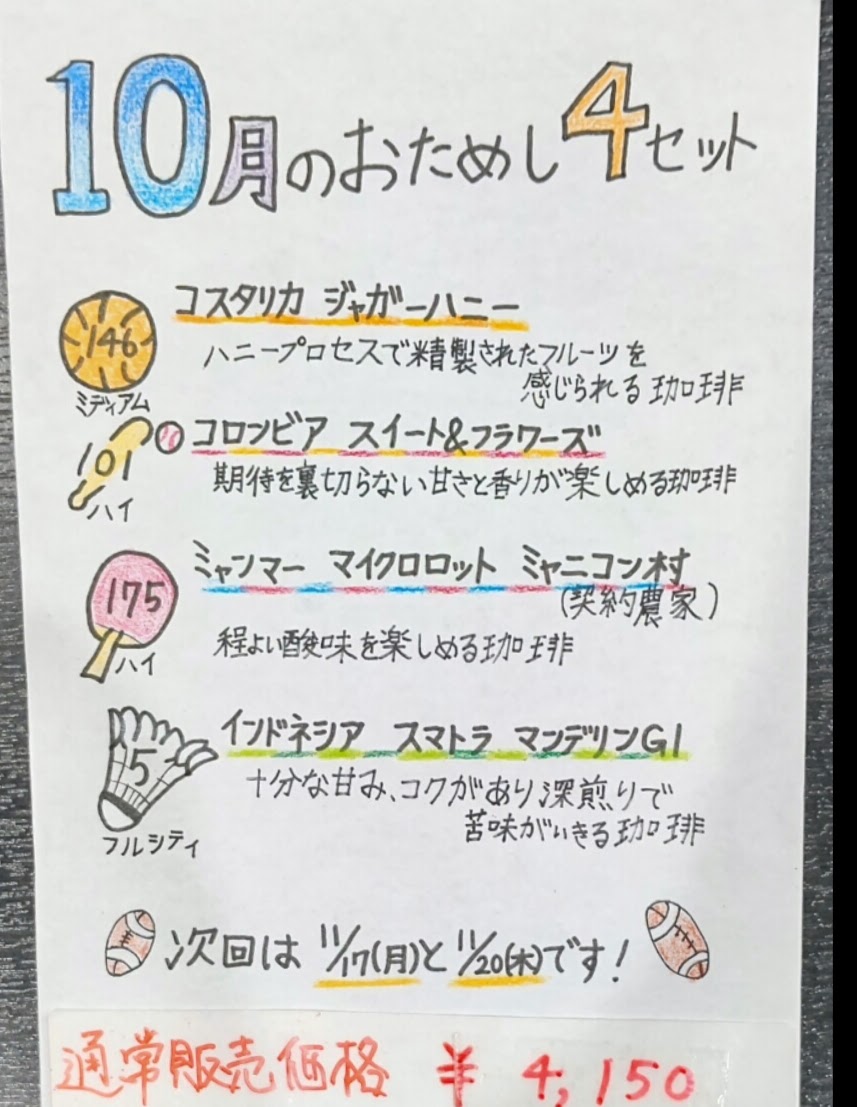 10月のおためし4セット
146
コスタリカ ジャガーハニー
ハニープロセスで精製されたフルーツを
感じられる珈琲
ミディアム
101
コロンビア スイート&フラワーズ
期待を裏切らない甘さと香りが楽しめる珈琲
ハイ
175
ミャンマー マイクロロット ミャニコン村
(契約農家)
程よい酸味を楽しめる珈琲
ハイ
5
インドネシア スマトラ マンデリンG1
十分な甘み、コクがあり深煎りで
苦味がいきる珈琲
フルシティ
次回は 11/17(月)と11/20(木)です!
通常販売価格 ¥4,150